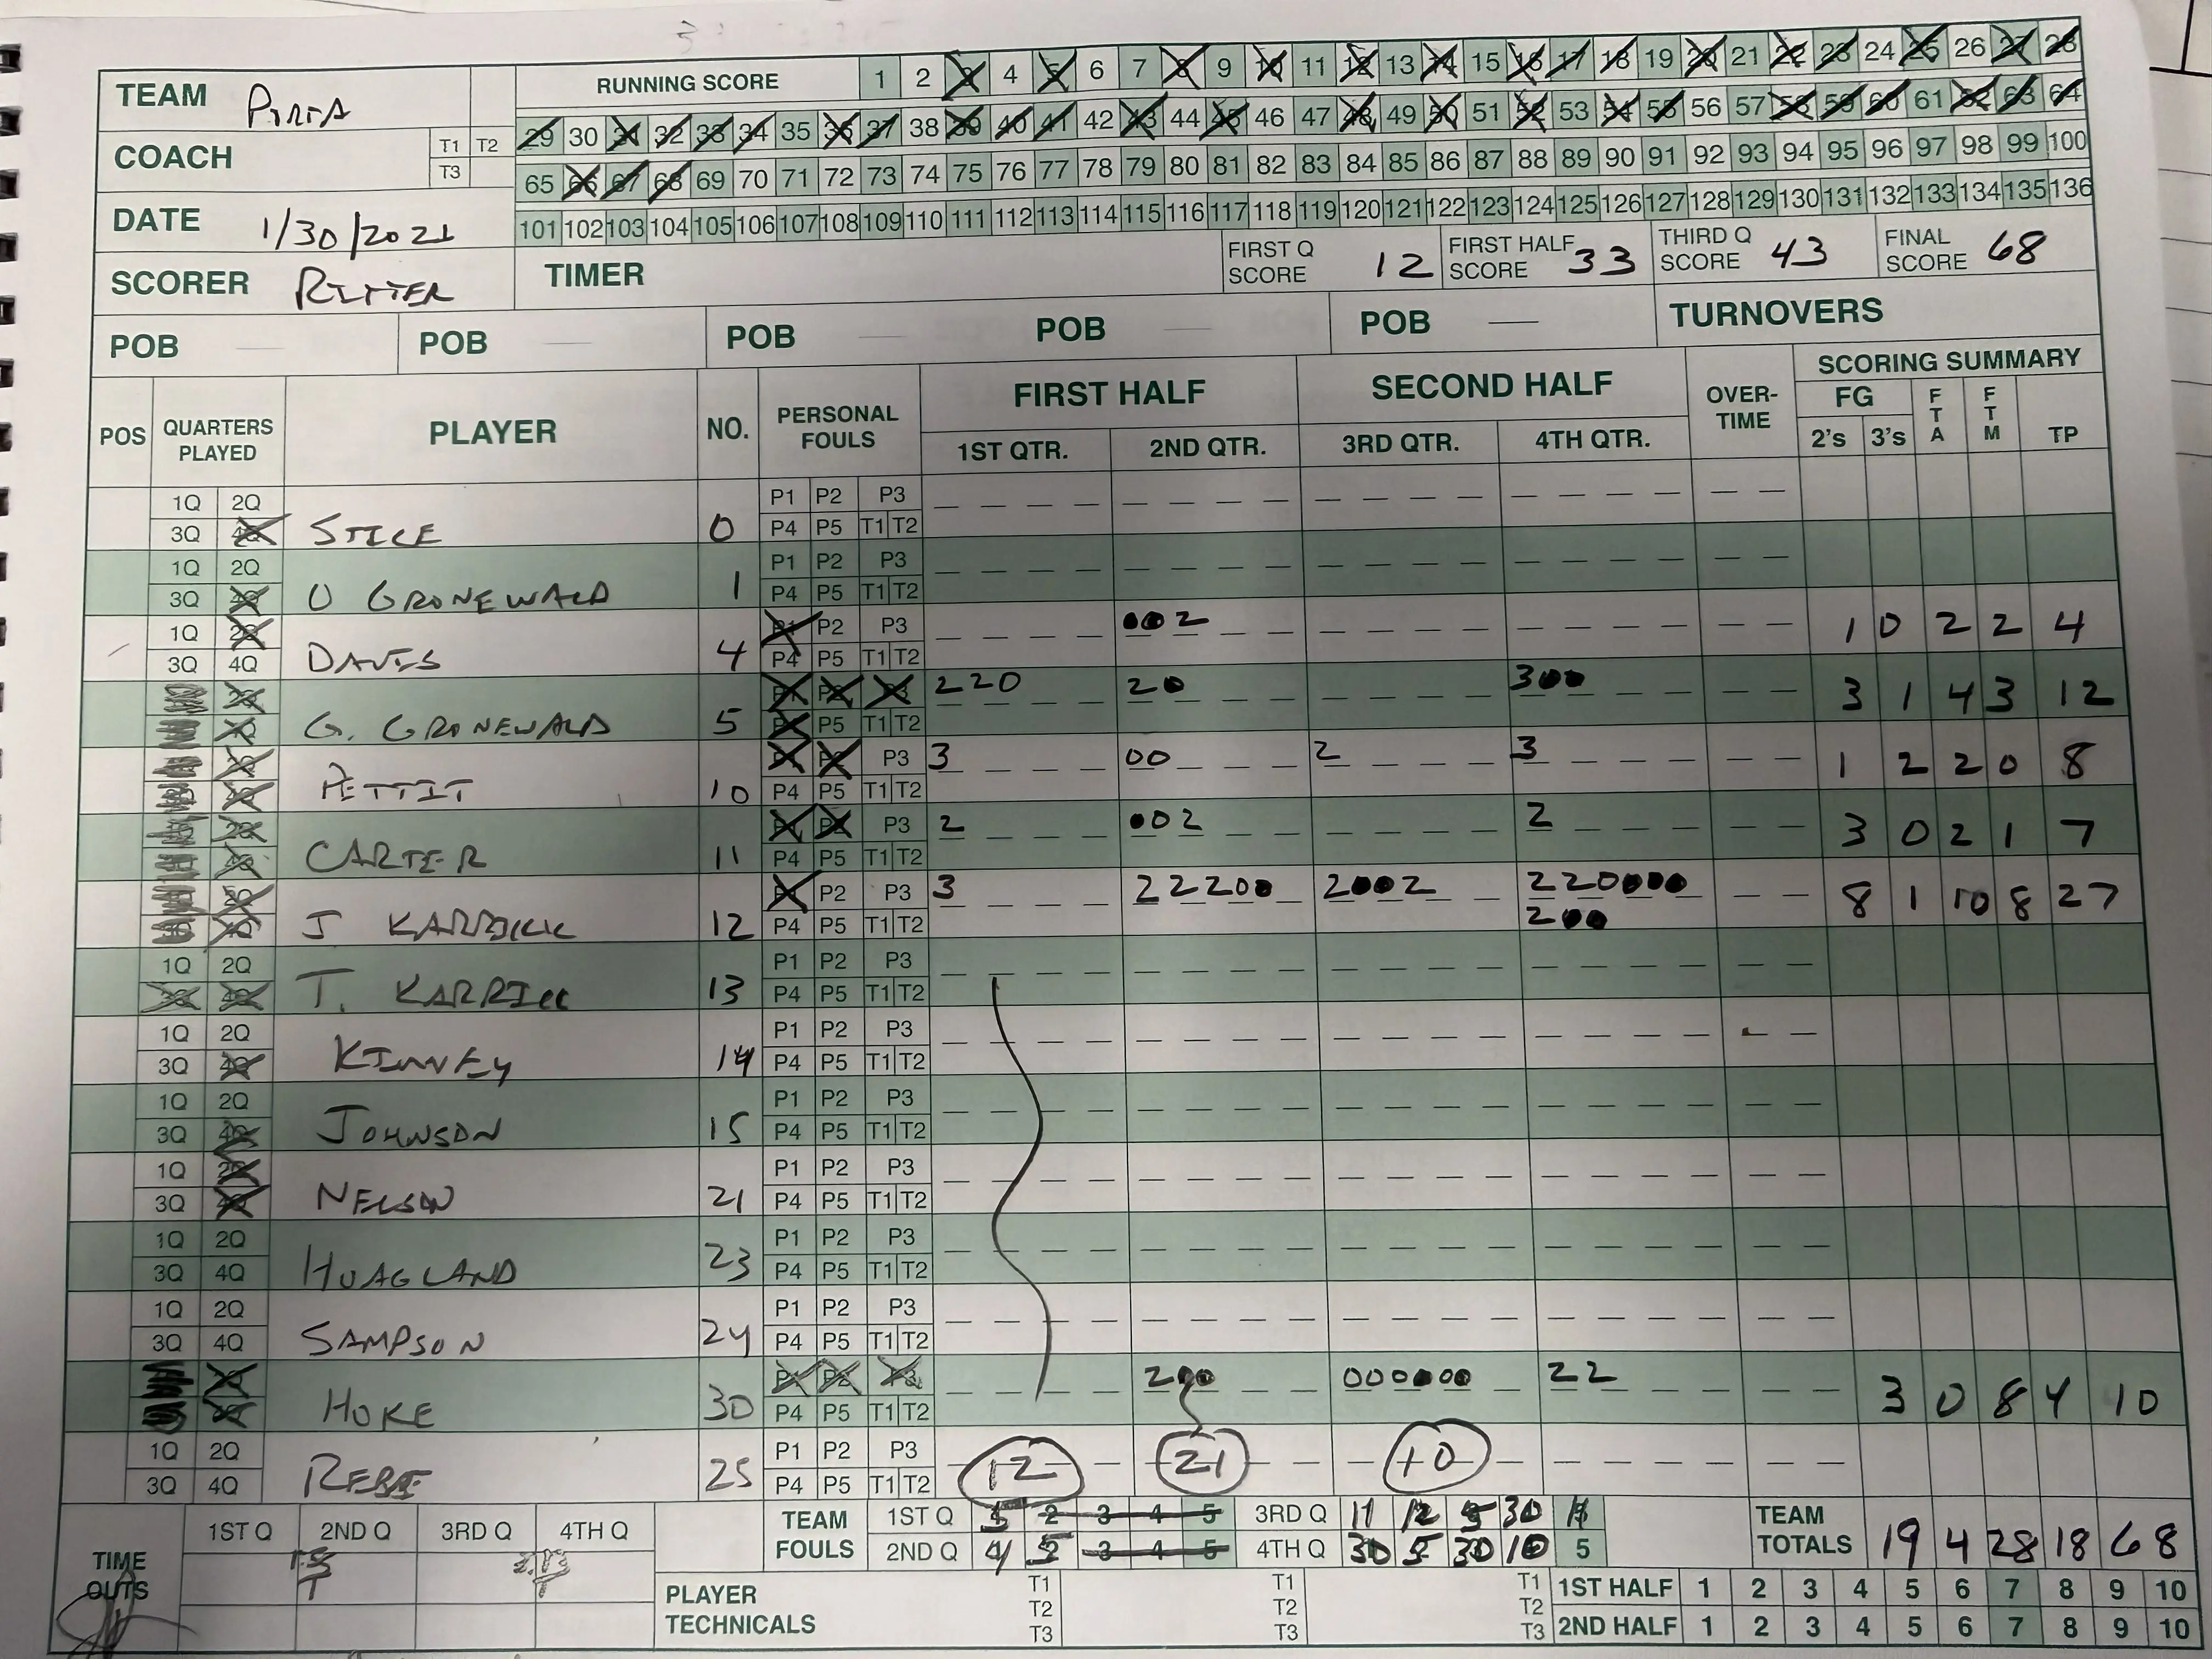 TEAM RUNNING SCORE 1 2 3 4 5 6 7 8 9 10 11 12 13 14 15 16 17 18 19 20 21 22 23 24 25 26 27 28
29 30 31 32 33 34 35 36 37 38 39 40 41 42 43 44 45 46 47 48 49 50 51 52 53 54 55 56 57 58 59 60 61 62 63 64
COACH T1 T2 T3
65 66 67 68 69 70 71 72 73 74 75 76 77 78 79 80 81 82 83 84 85 86 87 88 89 90 91 92 93 94 95 96 97 98 99 100
DATE 1/30/2021
101 102 103 104 105 106 107 108 109 110 111 112 113 114 115 116 117 118 119 120 121 122 123 124 125 126 127 128 129 130 131 132 133 134 135 136
SCORER RITTER TIMER FIRST Q SCORE 12 FIRST HALF SCORE 33 THIRD Q SCORE 43 FINAL SCORE 68
POB POB POB POB POB TURNOVERS
POS QUARTERS PLAYED PLAYER NO. PERSONAL FOULS FIRST HALF SECOND HALF OVER-TIME SCORING SUMMARY
1ST QTR. 2ND QTR. 3RD QTR. 4TH QTR. FG 2's 3's FTA FTM TP
1Q 2Q P1 P2 P3
3Q 4Q STICE 0 P4 P5 T1 T2
1Q 2Q P1 P2 P3
3Q 4Q O GRONEWALD 1 P4 P5 T1 T2
1Q 2Q P1 P2 P3 002 1 0 2 2 4
3Q 4Q DAVIS 4 P4 P5 T1 T2
2Q P1 P2 P3 220 20 300 3 1 4 3 12
4Q G. GRONEWALD 5 P4 P5 T1 T2
2Q P1 P2 P3 3 00 2 3 1 2 2 0 8
4Q PETTIT 10 P4 P5 T1 T2
2Q P1 P2 P3 2 002 2 3 0 2 1 7
4Q CARTER 11 P4 P5 T1 T2
2Q P1 P2 P3 3 22200 2002 220000 8 1 10 8 27
4Q J KARRICK 12 P4 P5 T1 T2 200
1Q 2Q P1 P2 P3
3Q 4Q T. KARRICK 13 P4 P5 T1 T2
1Q 2Q P1 P2 P3
3Q 4Q KINNEY 14 P4 P5 T1 T2
1Q 2Q P1 P2 P3
3Q 4Q JOHNSON 15 P4 P5 T1 T2
1Q 2Q P1 P2 P3
3Q 4Q NELSON 21 P4 P5 T1 T2
1Q 2Q P1 P2 P3
3Q 4Q HOAGLAND 23 P4 P5 T1 T2
1Q 2Q P1 P2 P3
3Q 4Q SAMPSON 24 P4 P5 T1 T2
2Q P1 P2 P3 200 000000 22 3 0 8 4 10
4Q HOKE 30 P4 P5 T1 T2
1Q 2Q P1 P2 P3 12 21 10
3Q 4Q 25 P4 P5 T1 T2
TIME OUTS 1ST Q 2ND Q 3RD Q 4TH Q TEAM FOULS 1ST Q 5 2 3 4 5 3RD Q 11 12 5 30 TEAM TOTALS 19 4 28 18 68
2ND Q 4 5 3 4 5 4TH Q 30 5 30 10 5
PLAYER TECHNICALS T1 T2 T3 T1 T2 T3 T1 T2 T3
1ST HALF 1 2 3 4 5 6 7 8 9 10
2ND HALF 1 2 3 4 5 6 7 8 9 10